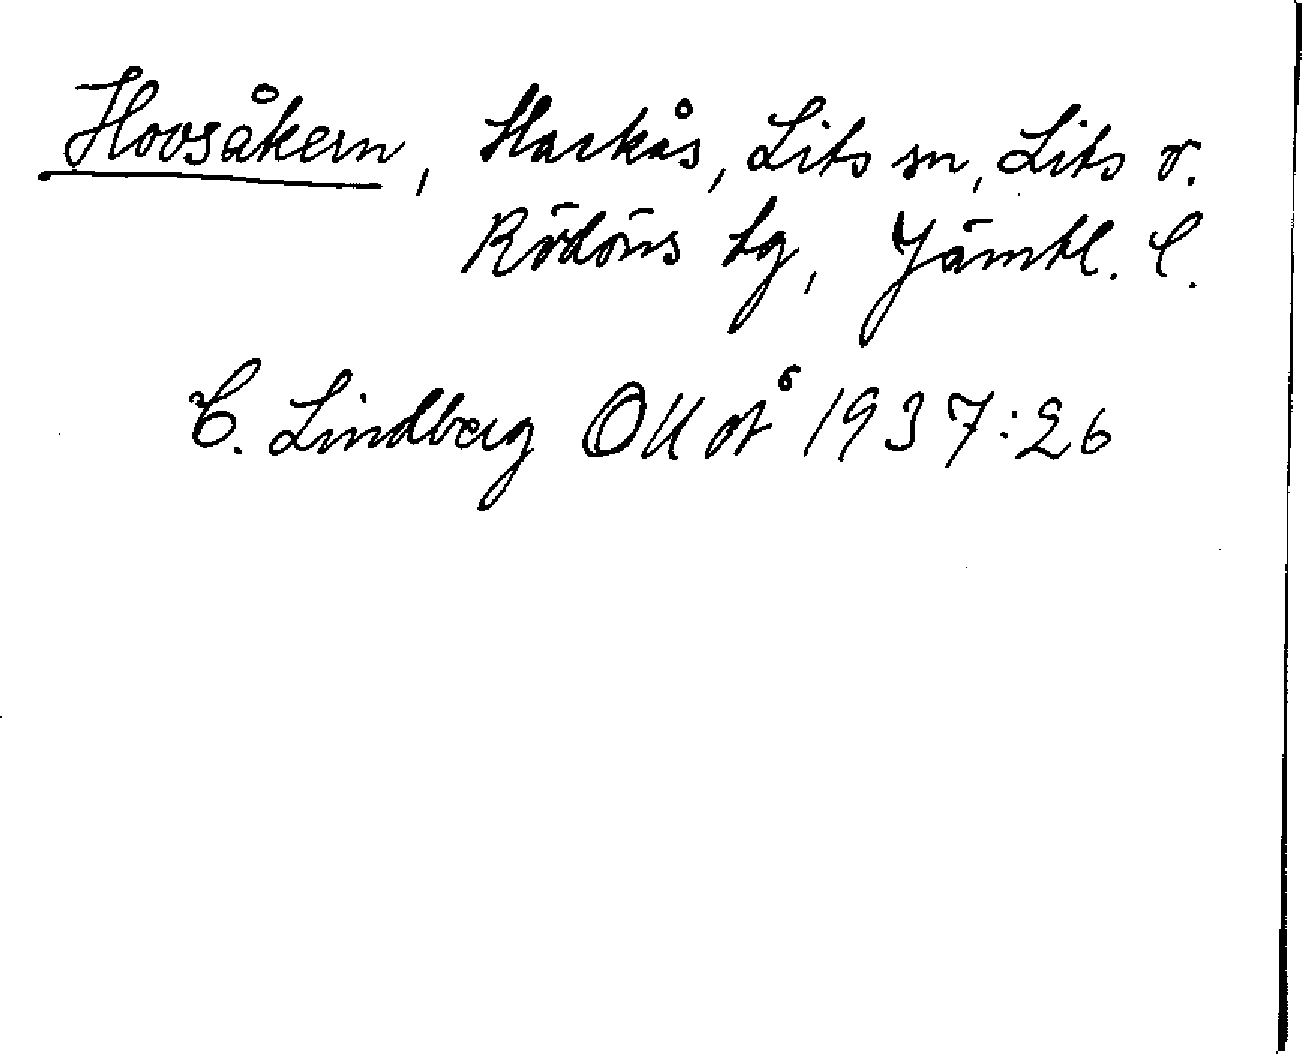 Hovsåkern, Hackås, Lits sn, Lits o.
Rödöns tg, Jämtl. l.
C. Lindberg 1937:26